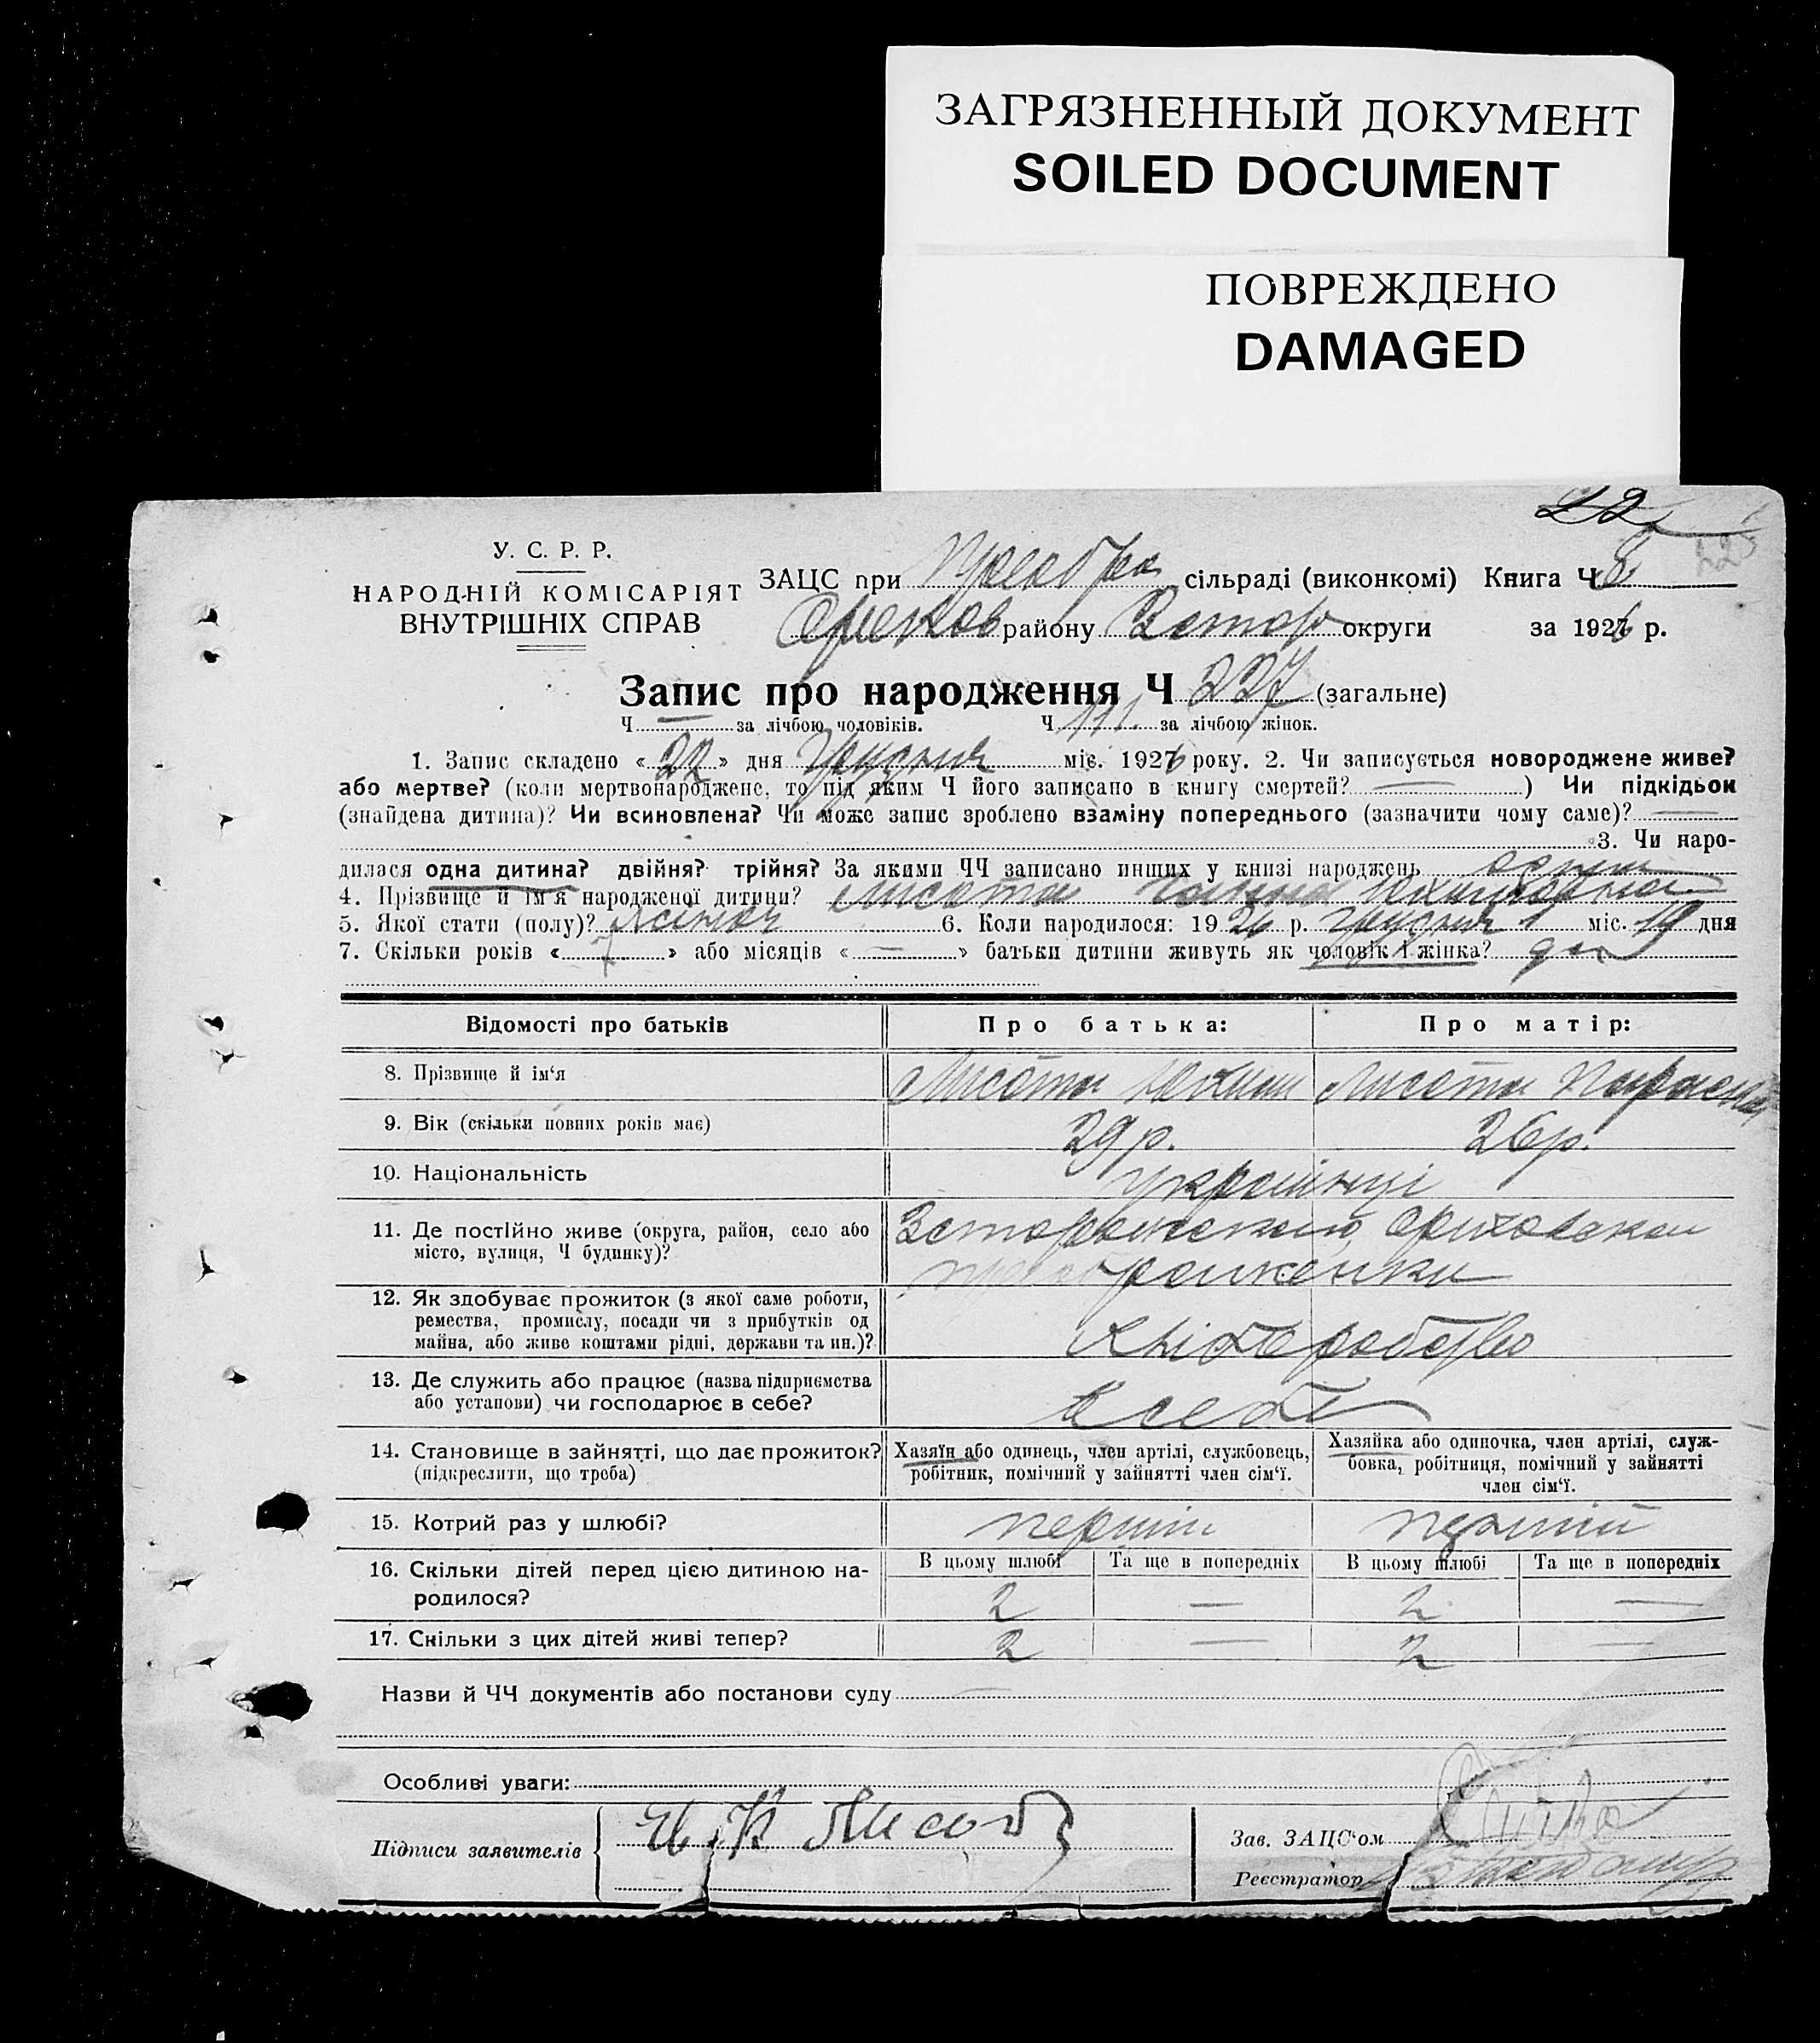 ЗАГРЯЗНЕННЫЙ ДОКУМЕНТ
SOILED DOCUMENT
ПОВРЕЖДЕНО
DAMAGED
22
У. С. Р. Р.
НАРОДНІЙ КОМІСАРІЯТ
ВНУТРІШНІХ СПРАВ
ЗАЦС при Преобра сільраді (виконкомі) Книга Ч 8
Орехов району Запор округи за 1926 р.
Запис про народження Ч 227 (загальне)
Ч — за лічбою чоловіків. Ч 111 за лічбою жінок.
1. Запис складено « 22 » дня Грудня міс. 1926 року. 2. Чи записується новороджене живе?
або мертве? (коли мертвонароджене, то під яким Ч його записано в книгу смертей? — ) Чи підкідьок
(знайдена дитина)? Чи всиновлена? Чи може запис зроблено взаміну попереднього (зазначити чому саме)? —
3. Чи наро-
дилася одна дитина? двійня? трійня? За якими ЧЧ записано инших у книзі народжень
4. Прізвище й ім'я народженої дитини? Лисота Ганна Юхимовна
5. Якої стати (полу)? Жіноч 6. Коли народилося: 1926 р. Грудня міс. 19 дня
7. Скільки років « 7 » або місяців « — » батьки дитини живуть як чоловік і жінка? да
Відомості про батьків Про батька: Про матір:
8. Прізвище й ім'я Лисота Юхим Лисота Параска
9. Вік (скільки повних років має) 29 р. 26 р.
10. Національність Українці
11. Де постійно живе (округа, район, село або
місто, вулиця, Ч будинку)?
Преображенки
12. Як здобуває прожиток (з якої саме роботи,
ремества, промислу, посади чи з прибутків од
майна, або живе коштами рідні, держави та ин.)?
Хліборобство
13. Де служить або працює (назва підприємства
або установи) чи господарює в себе?
в себе
14. Становище в зайнятті, що дає прожиток?
(підкреслити, що треба)
Хазяїн або одинець, член артілі, службовець,
робітник, помічний у зайнятті член сім'ї.
Хазяйка або одиночка, член артілі, служ-
бовка, робітниця, помічний у зайнятті
член сім'ї.
15. Котрий раз у шлюбі? перший перший
16. Скільки дітей перед цією дитиною на-
родилося?
В цьому шлюбі Та ще в попередніх В цьому шлюбі Та ще в попередніх
2 — 2 —
17. Скільки з цих дітей живі тепер? 2 — 2 —
Назви й ЧЧ документів або постанови суду —
Особливі уваги:
Підписи заявителів
Зав. ЗАЦС'ом
Реєстратор